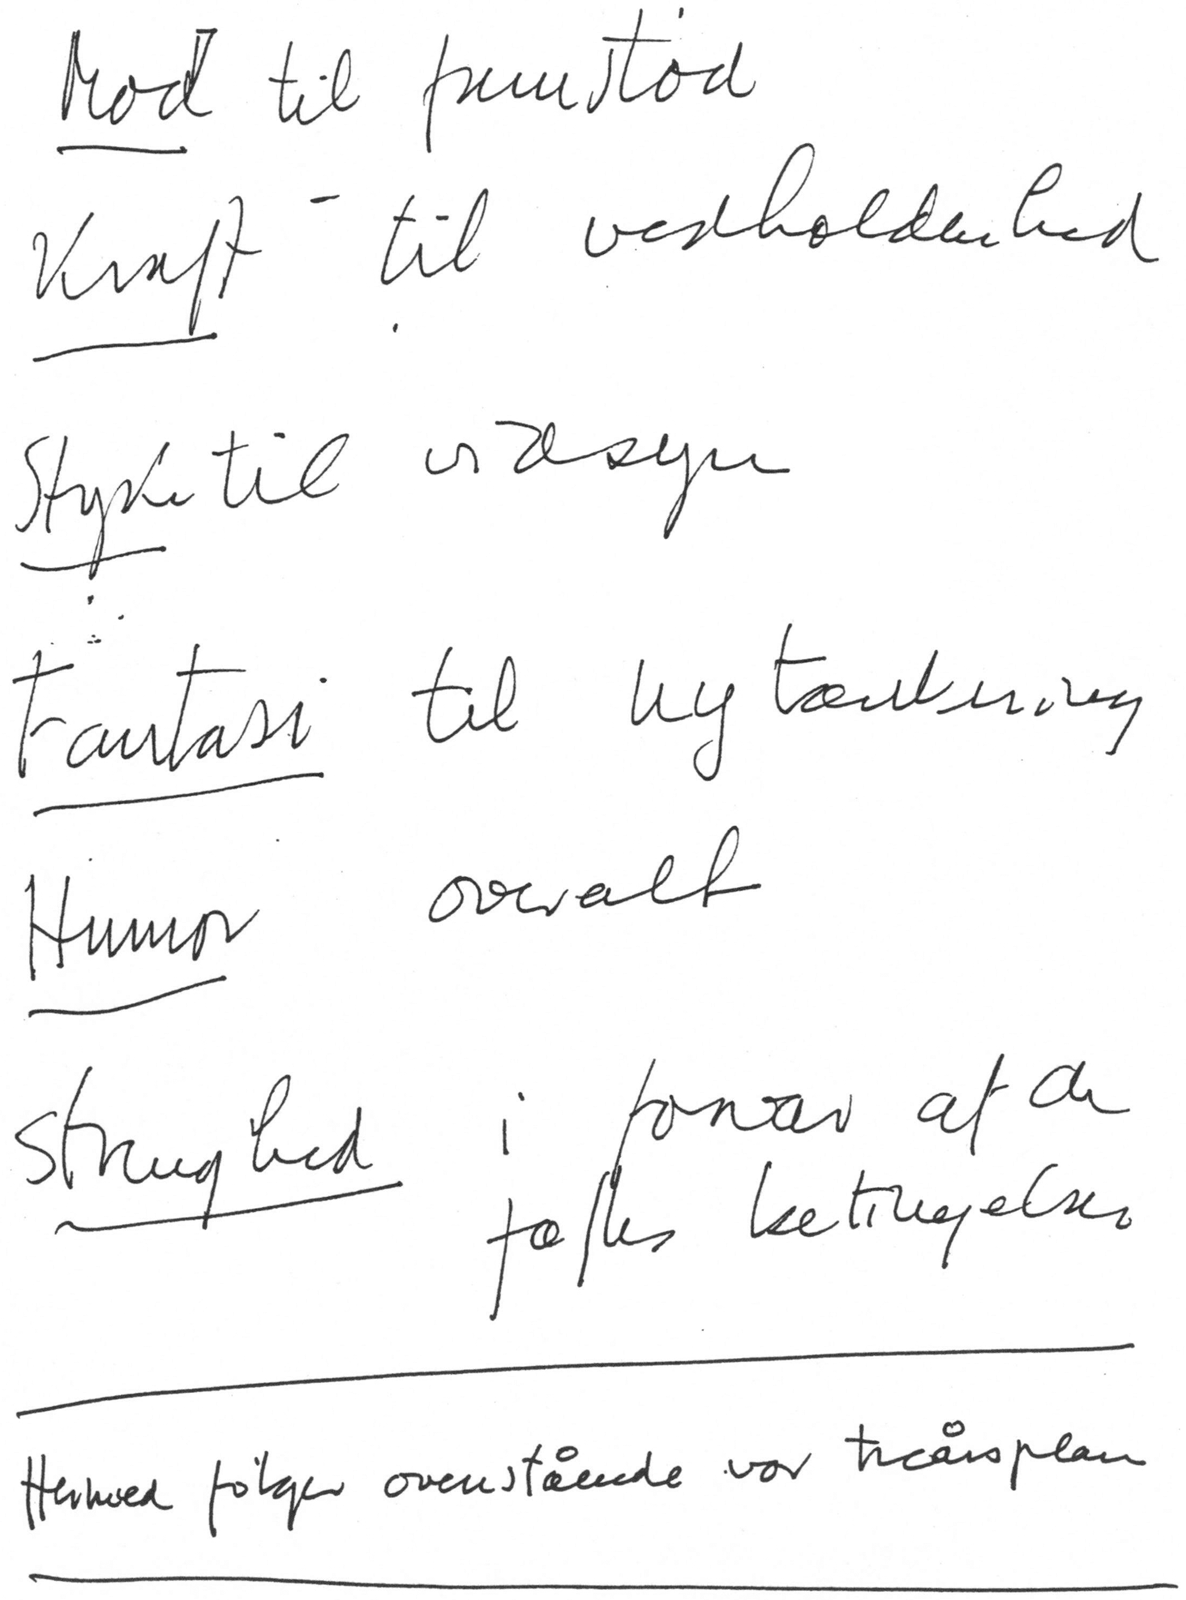 Mod til fremstød
Kraft til vedholdenhed
Styrke til vidsyn
Fantasi til nytænkning
Humor overalt
Stranghed i forsvar af de
fælles betingelser
Hermed følger ovenstående vor treårsplan